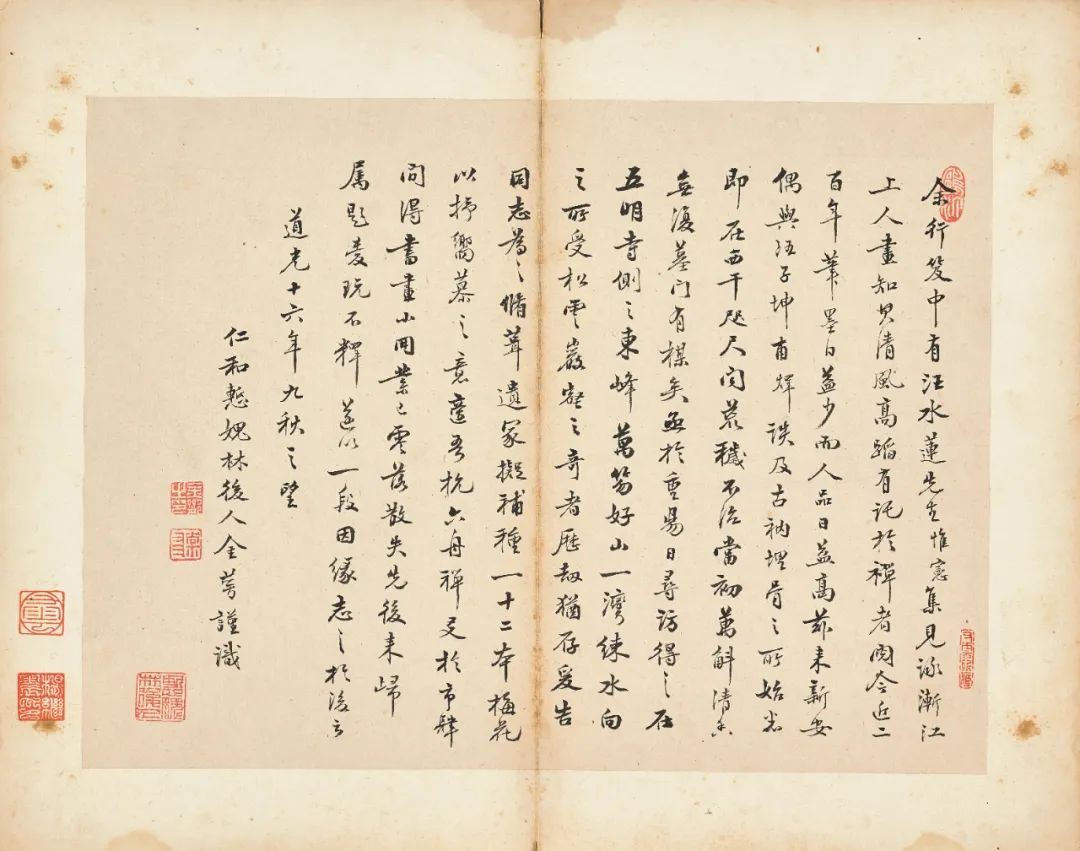 余行笈中有汪水蓮先生惟憲集見詠漸江
上人畫知其清風高蹈有託於禪者閱今近二
百年筆墨日益少而人品日益高茲來新安
偶與程子坤甫輝談及古衲埋骨之所始悉
即在西干咫尺間荒穢不治當初萬斛清香
無復墓門有楳矣亟於重昜日尋訪得之在
五明寺側之東峰萬笏好山一灣練水向
之所受松雲巖壑之奇者歷劫猶存爰告
同志為之脩葺遺冢擬補種一十二本梅花
以抒嚮慕之意適吾杭六舟禪友於市肆
間得書畫小冊業已零落散失先後来歸
屬題愛玩不釋遂以一段因緣志之於後云
道光十六年九秋之望
仁和慙媿林後人金 謹識